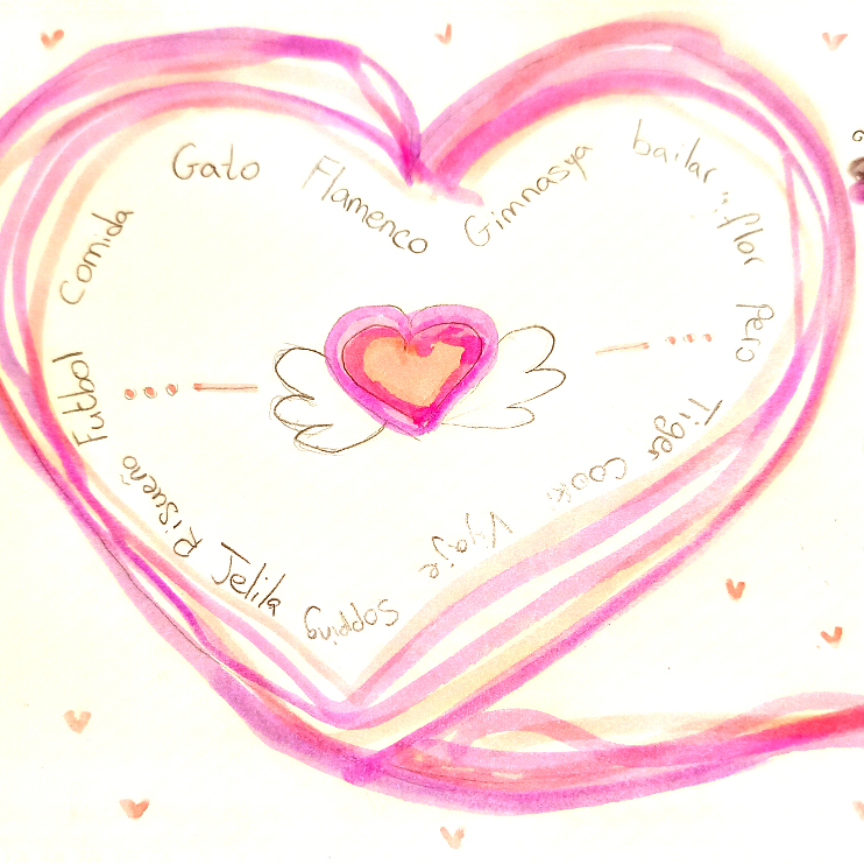 Gato
Flamenco
Gimnasya
bailar
flor
pero
Tiger
cooki
Vyaje
Sopping
Jelila
Risueño
Futbol
Comida